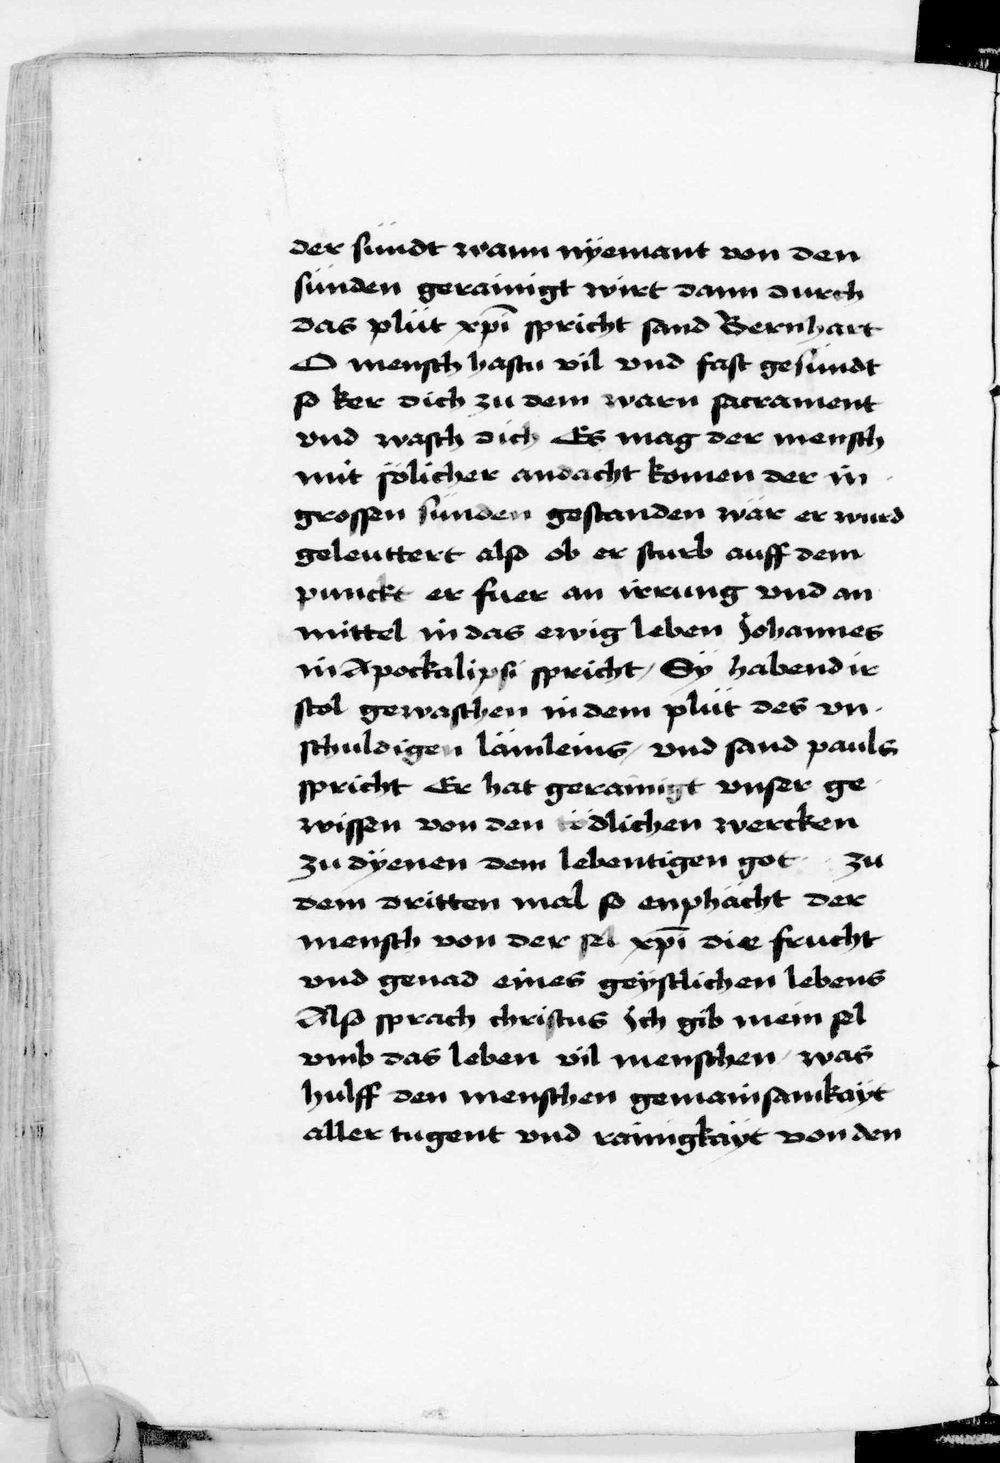 der sündt wann nÿemant von den
sünden gerainigt wirt dann durch
das plüt xp̄i spricht sand Bernhart
O mensch hastu vil vnd fast gesündt
so ker dich zu dem warn sacrament
vnd wasch dich Es mag der mensch
mit sölicher andacht komen der in
grossen sünden gestanden wär er wurd
geleuttert also ob er sturb auff dem
punckt er fuer an irrung vnd an
mittel in das ewig leben Johannes
in Apockalipsi spricht / Sÿ habend ir
stol gewaschen in dem plüt des vn-
schuldigen lämleins / vnd sand pauls
spricht Er hat gerainigt vnser ge-
wissen von den tödlichen wercken
zu dÿenen dem lebentigen got zu
dem dritten mal so enphächt der
mensch von der sel xp̄i die frucht
vnd genad eines geÿstlichen lebens
Also sprach christus Ich gib mein sel
vmb das leben vil menschen / was
hulff den menschen gemainsamkäÿt
aller tugent vnd rainigkäÿt von den